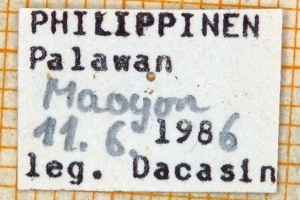 PHILIPPINEN
Palawan
Maoyon
11. 6. 1986
leg. Dacasin